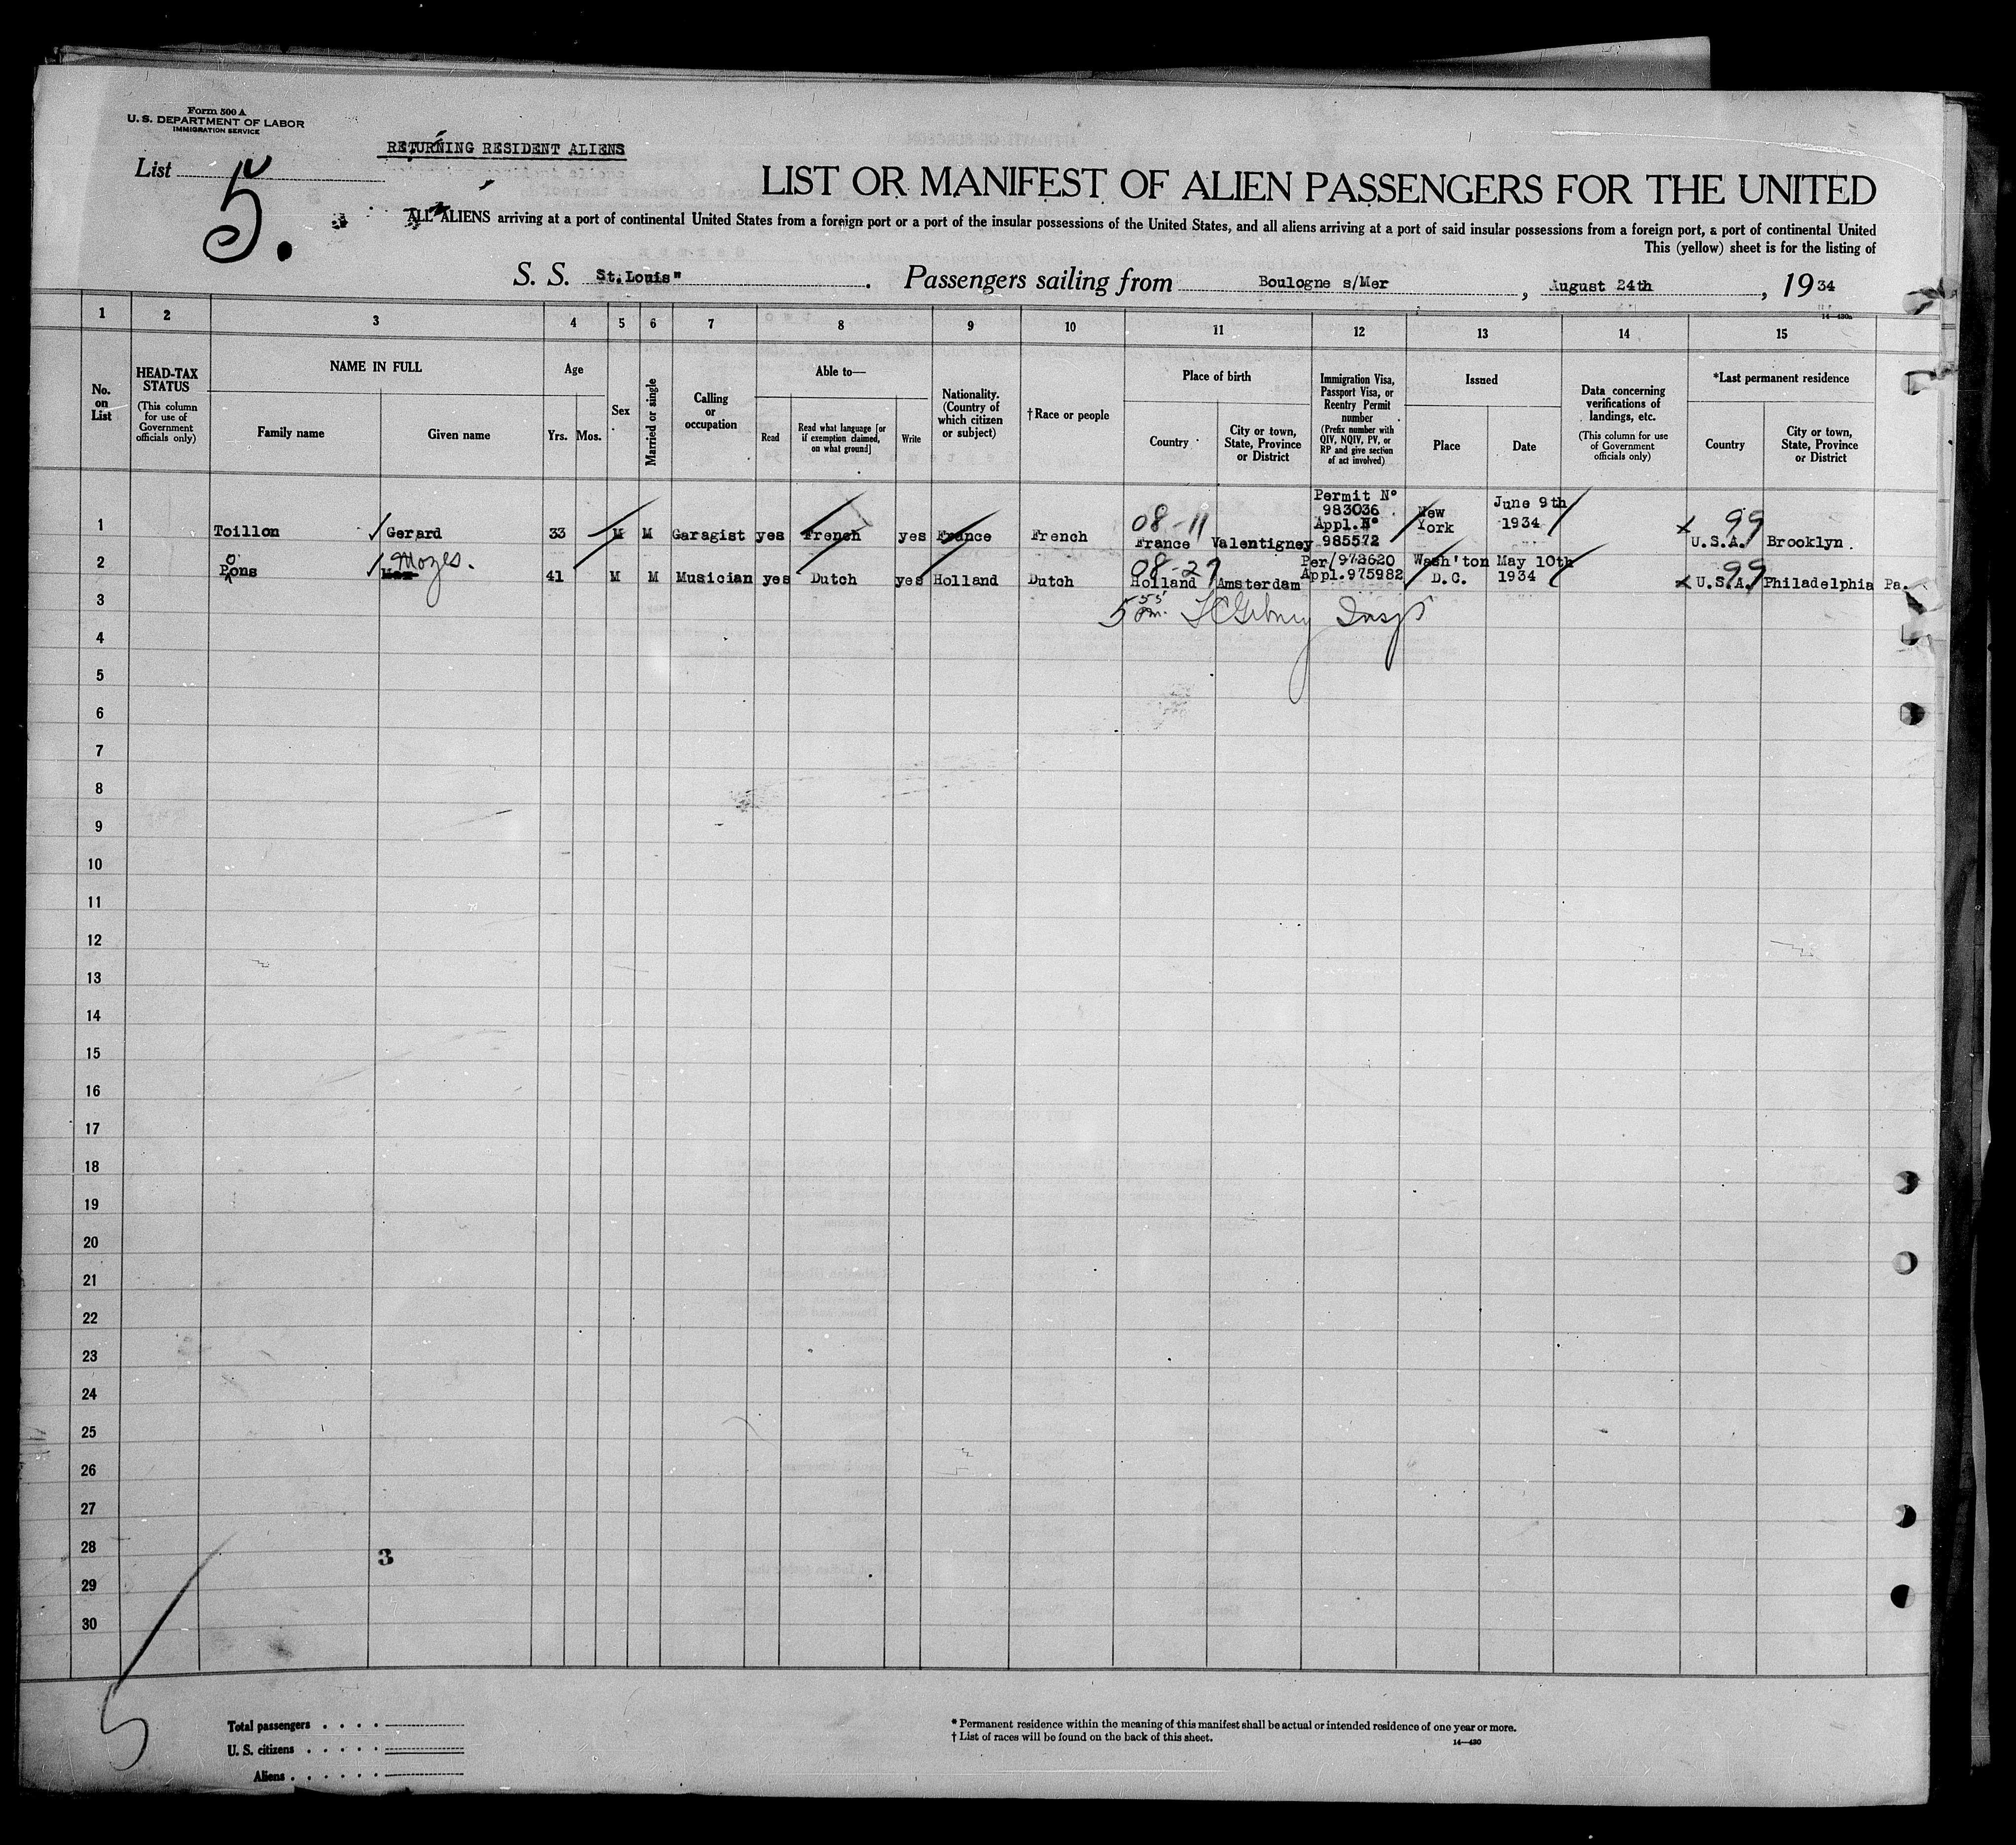 Form 500 A
U. S. DEPARTMENT OF LABOR
IMMIGRATION SERVICE
RETURNING RESIDENT ALIENS
List 5.
LIST OR MANIFEST OF ALIEN PASSENGERS FOR THE UNITED
ALL ALIENS arriving at a port of continental United States from a foreign port or a port of the insular possessions of the United States, and all aliens arriving at a port of said insular possessions from a foreign port, a port of continental United
This (yellow) sheet is for the listing of
S. S. St.Louis" . Passengers sailing from Boulogne s/Mer , August 24th , 1934
14—430a
1 2 3 4 5 6 7 8 9 10 11 12 13 14 15
No. on List
HEAD-TAX STATUS
(This column for use of Government officials only)
NAME IN FULL
Family name
Given name
Age
Yrs. Mos.
Sex
Married or single
Calling or occupation
Able to—
Read
Read what language [or if exemption claimed, on what ground]
Write
Nationality. (Country of which citizen or subject)
†Race or people
Place of birth
Country
City or town, State, Province or District
Immigration Visa, Passport Visa, or Reentry Permit number
(Prefix number with QIV, NQIV, PV, or RP and give section of act involved)
Issued
Place
Date
Data concerning verifications of landings, etc.
(This column for use of Government officials only)
*Last permanent residence
Country
City or town, State, Province or District
1 Toillon Gerard 33 M M Garagist yes French yes France French 08-11 France Valentigney Permit No 983036 Appl.No 985572 New York June 9th 1934 x 99 U.S.A. Brooklyn.
2 Pons o Max Mozes. 41 M M Musician yes Dutch yes Holland Dutch 08-27 Holland Amsterdam Per/973620 Appl.975982 Wash'ton D.C. May 10th 1934 x 99 U.S.A. Philadelphia Pa.
3 5 55 pm. Insp
4
5
6
7
8
9
10
11
12
13
14
15
16
17
18
19
20
21
22
23
24
25
26
27
28 3
29
30
5
Total passengers
U. S. citizens
Aliens
* Permanent residence within the meaning of this manifest shall be actual or intended residence of one year or more.
† List of races will be found on the back of this sheet.
14—430